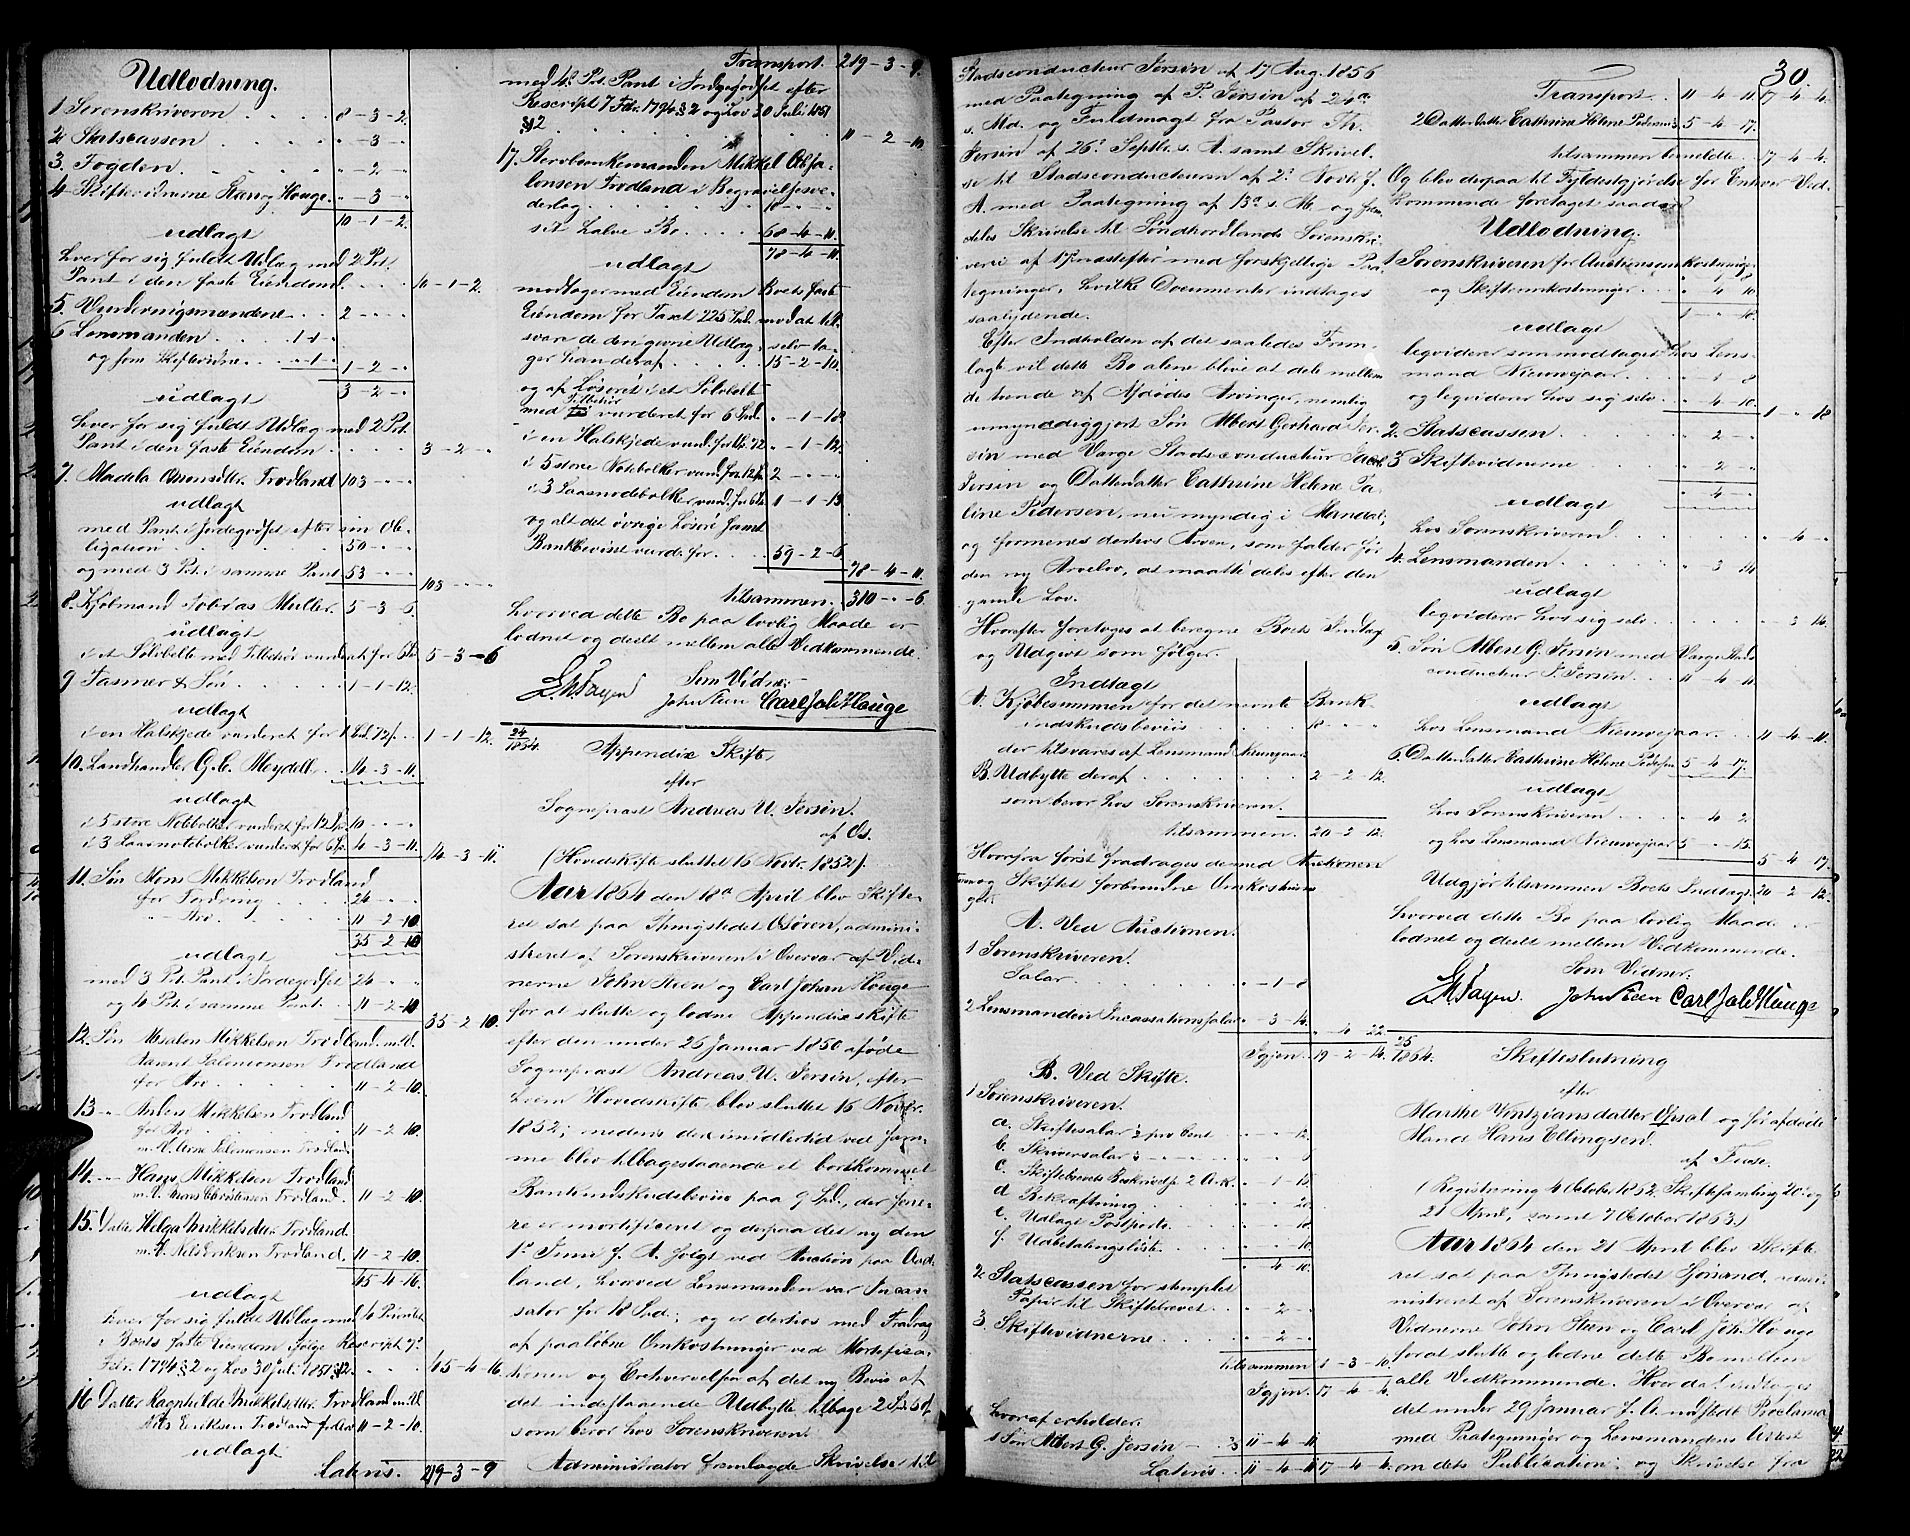 Udlodning.
1 Sorenskriveren . . . . 8 - 3 - 2.
2 Statscassen . . . . " - 3 - "
3. Fogden . . . . " - 2 - "
4 Skiftevidnerne Steen og Houge. " - 3 - "
10 - 1 - 2.
udlagt
hver for sig fuldt Udlæg med 2 Prt.
Pant i den faste Eiendom . . . 10 - 1 - 2.
5. Vurderingsmændene . . . 2 - " - "
6 Lensmanden . . . 1 " 1 "
og som Skiftevidne . . " 1 " 1 - 2 - "
3 - 2 - "
udlagt
hver for sig fuldt Udlæg med 2 Prt.
Pant i den faste Eiendom . . . . 3 - 2 - "
7. Madela Amonsdtter Trodland 103 - " - "
udlagt
med Pant i Jordegodset efter sin Ob-
ligation . . . 50 - " - "
og med 3 Prt. i samme Pant 53 - " - "
103 - " - "
8. Kjøbmand Tobias Müller. 5 - 3 - 6.
udlagt
i et Sølvbelte med Tilbehør vurderet for 6 Spd. 5 - 3 - 6
9 Fasmer & Søn . . . . 1 - 1 - 12.
udlagt
i en Halskjede vurderet for 1 Spd. 72 s. . 1 - 1 - 12.
10. Landhandler G. C. Meydell . . 14 - 3 - 11.
udlagt
i 5 store Notebolker vurderet for 12 Spd. 10 - " - "
i 3 Laasnotebolker vurderet for 6 Spd. 4 - 3 - 11. 14 - 3 - 11.
11. Søn Mons Mikkelsen Trodland
for Fordring . . . . 24 - " - "
" - Arv . . . . 11 - 2 - 10
35 - 2 - 10
udlagt
med 3 Prt. Pant i Jordegodset 24 - " - "
og 4 Prt. i samme Pant . . 11 - 2 - 10
35 - 2 - 10.
12. Søn Absalon Mikkelsen Trodland m. V.
Aarent Salomonsen Trodland
for Arv . . . . 11 - 2 - 10.
13 - " - Anders Mikkelsen Trodland
for Arv . . . . 11 - 2 - 10.
m. V. Arne Salomonsen Trodland
14. - " - Hans Mikkelsen Trodland
m. V. Mons Christensen Trodland. 11 - 2 - 10.
15. Datter Helga Mikkelsdtter Trodland.
m. V. Nels Eriksen Trodland. 11 - 2 - 10.
45 - 4 - 16.
udlagt
hver for sig fuldt Udlæg med 4 Prioritet
i Boets faste Eiendom ifølge Rescript 7de
Febr. 1794 § 2 og Lov 30 Juli 1851 § 12. . . . 45 - 4 - 16.
16 Datter Ragnhilde Mikkelsdtter Trodland m. V.
Nels Eriksen Trodland for Arv 11 - 2 - 10.
udlagt
Lateris. 219 - 3 - 9
Transport. 219 - 3 - 9.
med 4de Prt. Pant i Jordegodset efter
Rescript 7 Febr. 1794 § 2 og Lov 30 Juli 1851
§ 12 . . . . 11 - 2 - 10
17. Stervboenkemanden Mikkel Absa-
lonsen Trodland i Begravelsesve-
derlag . . . . 10 - " - "
sit halve Bo. . . . 68 - 4 - 11.
78 - 4 - 11.
udlagt
modtager med Eiendom Boets faste
Eiendom for Taxt 225 Spd. mod at til-
svare de deri givne Udlæg, selv ta-
ger han deraf . . . . 15 - 2 - 10.
og af Løsøret i et Sølvbelt
Tilbehør
med vurderet for 6 Spd. " - 1 - 18.
i en Halskjede vurd. for 1 Spd. 72 " - 1 - 12.
i 5 store Notebolker vurd. for 12 Spd. 2 - " - "
i 3 Laasnotebolker vurd. for 6 Spd. 1 - 1 - 13
og alt det øvrige Løsøre samt
Bankbeviset vurd. for . . . 59 - 2 - 6
78 - 4 - 11.
tilsammen. 310 - " - 6
hvorved dette Bo paa lovlig Maade er
lodnet og deelt mellem alle Vedkommende.
Som Vidner
E. M. Fayen John Steen Carl Joh Houge
24/1864. Appendix Skifte
efter
Sogneprest Andreas U. Jersin.
af Os.
(Hovedskifte sluttet 16 Novbr. 1852).
Aar 1864 den 18de April blev Skifte-
ret sat paa Thingstedet Osøren, admini-
streret af Sorenskriveren i Overvær af Vid-
nerne John Steen og Carl Johan Houge
for at slutte og lodne Appendix skifte
efter den under 26 Januar 1850 afdøde
Sogneprest Andreas U. Jersin, efter
hvem Hovedskifte blev sluttet 16 Novbr.
1852; medens der imidlertid ved sam-
me blev tilbagestaaende et bortkommet
Bankindskudsbeviis paa 9 Spd., der sene-
re er mortificeret og derpaa det ny den
1ste Juni f. A. solgt ved Auction paa Ord-
land, hvorved Lensmanden var Incas-
sator for 18 Spd.; og er derhos med Fradrag
af paaløbne Omkostninger ved Mortifica-
tionen og Erhvervelsen af det ny Bevis af
det indestaaende Udbytte tilbage 2 Spd.
som beror hos Sorenskriveren.
Administrator fremlagde Skrivelse til
30.
Stadsconducteur Jersin af 17 Aug. 1856
med Paategning af P. Jersin af 24de
s. Md. og Fuldmagt fra Pastor Th.
Jersin af 26de Septbr. s. A. samt Skrivel-
se til Stadsconducteuren af 2den Novbr. f.
A. med Paategning af 13de s. M. og frem-
deles Skrivelse til Søndhordlands Sorenskri-
veri af 17 næstefter med forskjellige Paa-
tegninger, hvilke Documenter indtages
saalydende.
Efter Indholden af det saaledes Frem-
lagte vil dette Bo alene blive at dele mellem
de tvende af Afdødes Arvinger, nemlig
umyndiggjort Søn Albert Gerhard Jer-
sin med Værge Stadsconducteur
Jersin og Datterdatter Cathrine Helene Pa-
line Pedersen, nu myndig i Mandal,
og formenes derhos Arven, som falder før
den ny Arvelov, at maatte deles efter den
gamle Lov.
Hvorefter foretoges at beregne Boets Indtægt
og Udgivt som følger.
Indtægt
A. Kjøbesummen for det nævnte Bank-
indskudsbeviis . . . 18 - " - "
der tilsvares af Lensmand Nieuwejaar
B. Udbytte deraf . . . . 2 - 2 - 12.
som beror hos Sorenskriveren.
tilsammen. 20 - 2 - 12.
Hvorfra først fradrages de med Auctionen
og Skiftet forbundne Omkostninger
A. Ved Auctionen.
1 Sorenskriveren.
Salær . . . . " - 1 - 8
2 Lensmanden Incassationssalær " - 3 - 14.
" - 4 - 22.
Igjen. 19 - 2 - 14.
B. Ved Skifte.
1 Sorenskriveren.
a. Skiftesalær ½ pro Cent . . " - " - 12.
b. Skriversalær
c. Skiftebrevets Beskrivelse 2 Ark. " - 1 - 12.
d. Bekræftning . . . " - " - 20.
e. Udlagt Postporto . . " - " - 18.
f. Udbetalingsliste . . " - " - 10.
" 4 - 10.
2 Statscassen for stemplet
Papir til Skiftebrevet . . " - 2 - "
3. Skiftevidnerne . . . " - 2 - "
tilsammen 1 - 3 - 10
Igjen. 17 - 4 - 4.
hvoraf erholder.
1 Søn Albert G. Jersin 11 - 4 - 11
Lateris 11 - 4 - 11 17 - 4 - 4
Transport . 11 - 4 - 11. 17 - 4 - 4.
2 Datterdatter Cathrine Helene Pedersen 5 - 4 - 17.
tilsammen bemeldte 17 - 4 - 4.
Og blev derpaa til Fyldestgjørelse for Enhver Ved-
kommende foretaget saadan
Udlodning.
1 Sorenskriveren for Auctionsomkostninger
og Skifteomkostninger . . . " 4 10.
udlagt
leqviderer som modtaget hos Lens-
mand Nieuwejaar . . . " - 1 - 8
og leqviderer hos sig selv . . " - 4 - 10.
1 - " - 18
2. Statscassen . . . . " 2 - "
3 Skiftevidnerne . . . " 2 - "
" - 4 - "
udlagt
hos Sorenskriveren . . . . " 4 - "
4. Lensmanden . . . " 3 14
udlagt
leqviderer hos sig selv . . . . " 3 14.
5. Søn Albert G. Jersin med Værge Stads-
conducteur J. Jersin . . . 11 - 4 - 11.
udlagt
hos Lensmand Nieuwejaar . . 11 - 4 - 11.
6 Datterdatter Cathrine Helene Pedersen 5 - 4 - 17.
udlagt
hos Sorenskriveren . . . " 4 2.
og hos Lensmand Nieuwejaar 5 - " - 15.
5 - 4 - 17.
Udgjør tilsammen Boets Indtægt 20 - 2 - 12.
hvorved dette Bo paa lovlig Maade er
lodnet og deelt mellem Vedkommende.
Som Vidner.
E. M. Fayen. John Steen Carl Joh Houge
25/1864. Skifteslutning
efter
Marthe Vintziansdatter Opsal og før afdøde
Mand Hans Ellingsen.
af Fuse.
(Registrering 4 October 1862. Skiftesamling 20 og
21 April, samt 7 October 1863.)
Aar 1864 den 21 April blev Skifte-
ret sat paa Thingstedet Sjøsand, admi-
nistreret af Sorenskriveren i Overvær af
Vidnerne John Steen og Carl Joh. Houge
for at slutte og lodne dette Bo mellem
alle Vedkommende. Hvor da indtages
det under 29 Januar f. A. udstedt Proclama
med Paategninger og Lensmandens Attest
om dets Publication: og Skrivelse fra